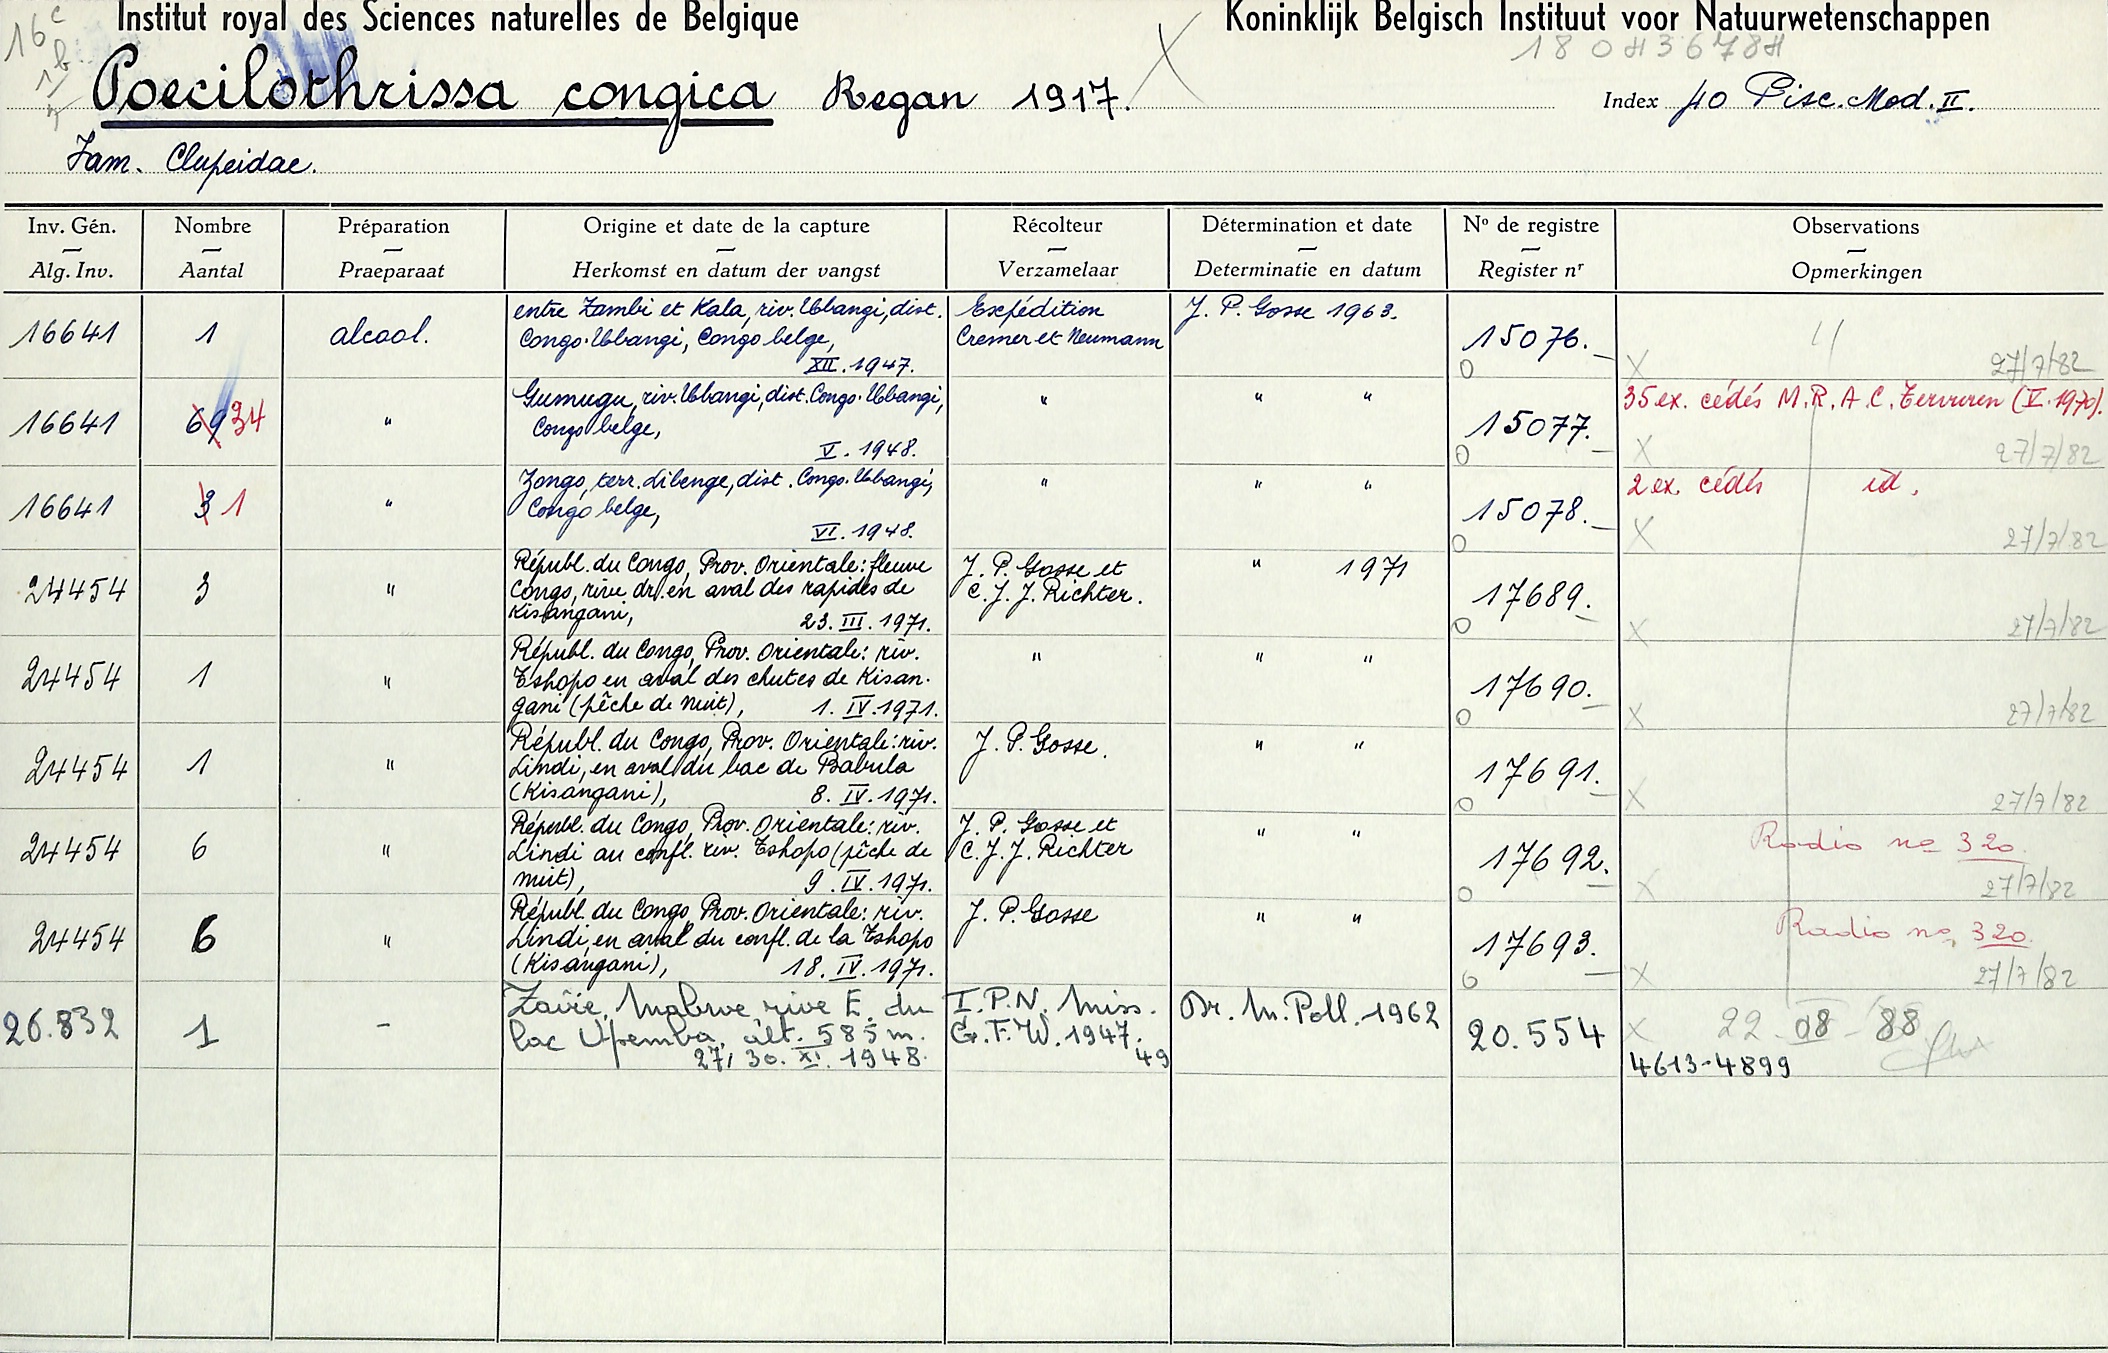 Institut royal des Sciences naturelles de Belgique
Koninklijk Belgisch Instituut voor Natuurwetenschappen
16 c
b
Poecilothrissa congica Regan 1917.
Index 40 Pisc. Mod. II.
Fam. Clupeidae.
Inv. Gén. Nombre Préparation Origine et date de la capture Récolteur Détermination et date No de registre Observations
Alg. Inv. Aantal Praeparaat Herkomst en datum der vangst Verzamelaar Determinatie en datum Register nr Opmerkingen
16641 1 alcool.
entre Zambi et Kala, riv. Ubangi, dist.
Congo-Ubangi, Congo belge,
XII. 1947.
Expédition
Cremer et Neumann
J. P. Gosse 1963.
15076.
O
X 27/7/82
16641 69 34 "
Gumugu, riv. Ubangi, dist. Congo-Ubangi,
Congo belge,
V. 1948.
" " "
15077.
O
35 ex. cédés M.R.A.C. Tervuren (V.1970).
X 27/7/82
16641 3 1 "
Zongo, terr. Libenge, dist. Congo-Ubangi,
Congo belge,
VI. 1948.
" " "
15078.
O
2 ex. cédés id.
X 27/7/82
24454 3 "
Républ. du Congo, Prov. Orientale: fleuve
Congo, rive dr. en aval des rapides de
Kisangani,
23. III. 1971.
J. P. Gosse et
C. J. J. Richter.
" 1971
17689.
O
X 27/7/82
24454 1 "
Républ. du Congo, Prov. Orientale: riv.
Tshopo en aval des chutes de Kisan-
gani (pêche de nuit), 1. IV. 1971.
" " "
17690.
O
X 27/7/82
24454 1 "
Républ. du Congo, Prov. Orientale: riv.
Lindi, en aval du bac de Babula
(Kisangani), 8. IV. 1971.
J. P. Gosse.
" "
17691.
O
X 27/7/82
24454 6 "
Républ. du Congo, Prov. Orientale: riv.
Lindi au confl. riv. Tshopo (pêche de
nuit), 9. IV. 1971.
J. P. Gosse et
C. J. J. Richter
" "
17692.
O
Radio no 320.
X 27/7/82
24454 6 "
Républ. du Congo, Prov. Orientale: riv.
Lindi, en aval du confl. de la Tshopo
(Kisangani), 18. IV. 1971.
J. P. Gosse
" "
17693.
O
Radio no 320.
X 27/7/82
26.832 1 –
Zaïre, Mabwe, rive E. du
lac Upemba, alt. 585 m.
27, 30. XI. 1948.
I.P.N. Miss.
G.F.W. 1947.
49
Dr. M. Poll. 1962
20.554
X 22-08-88
4613-4899